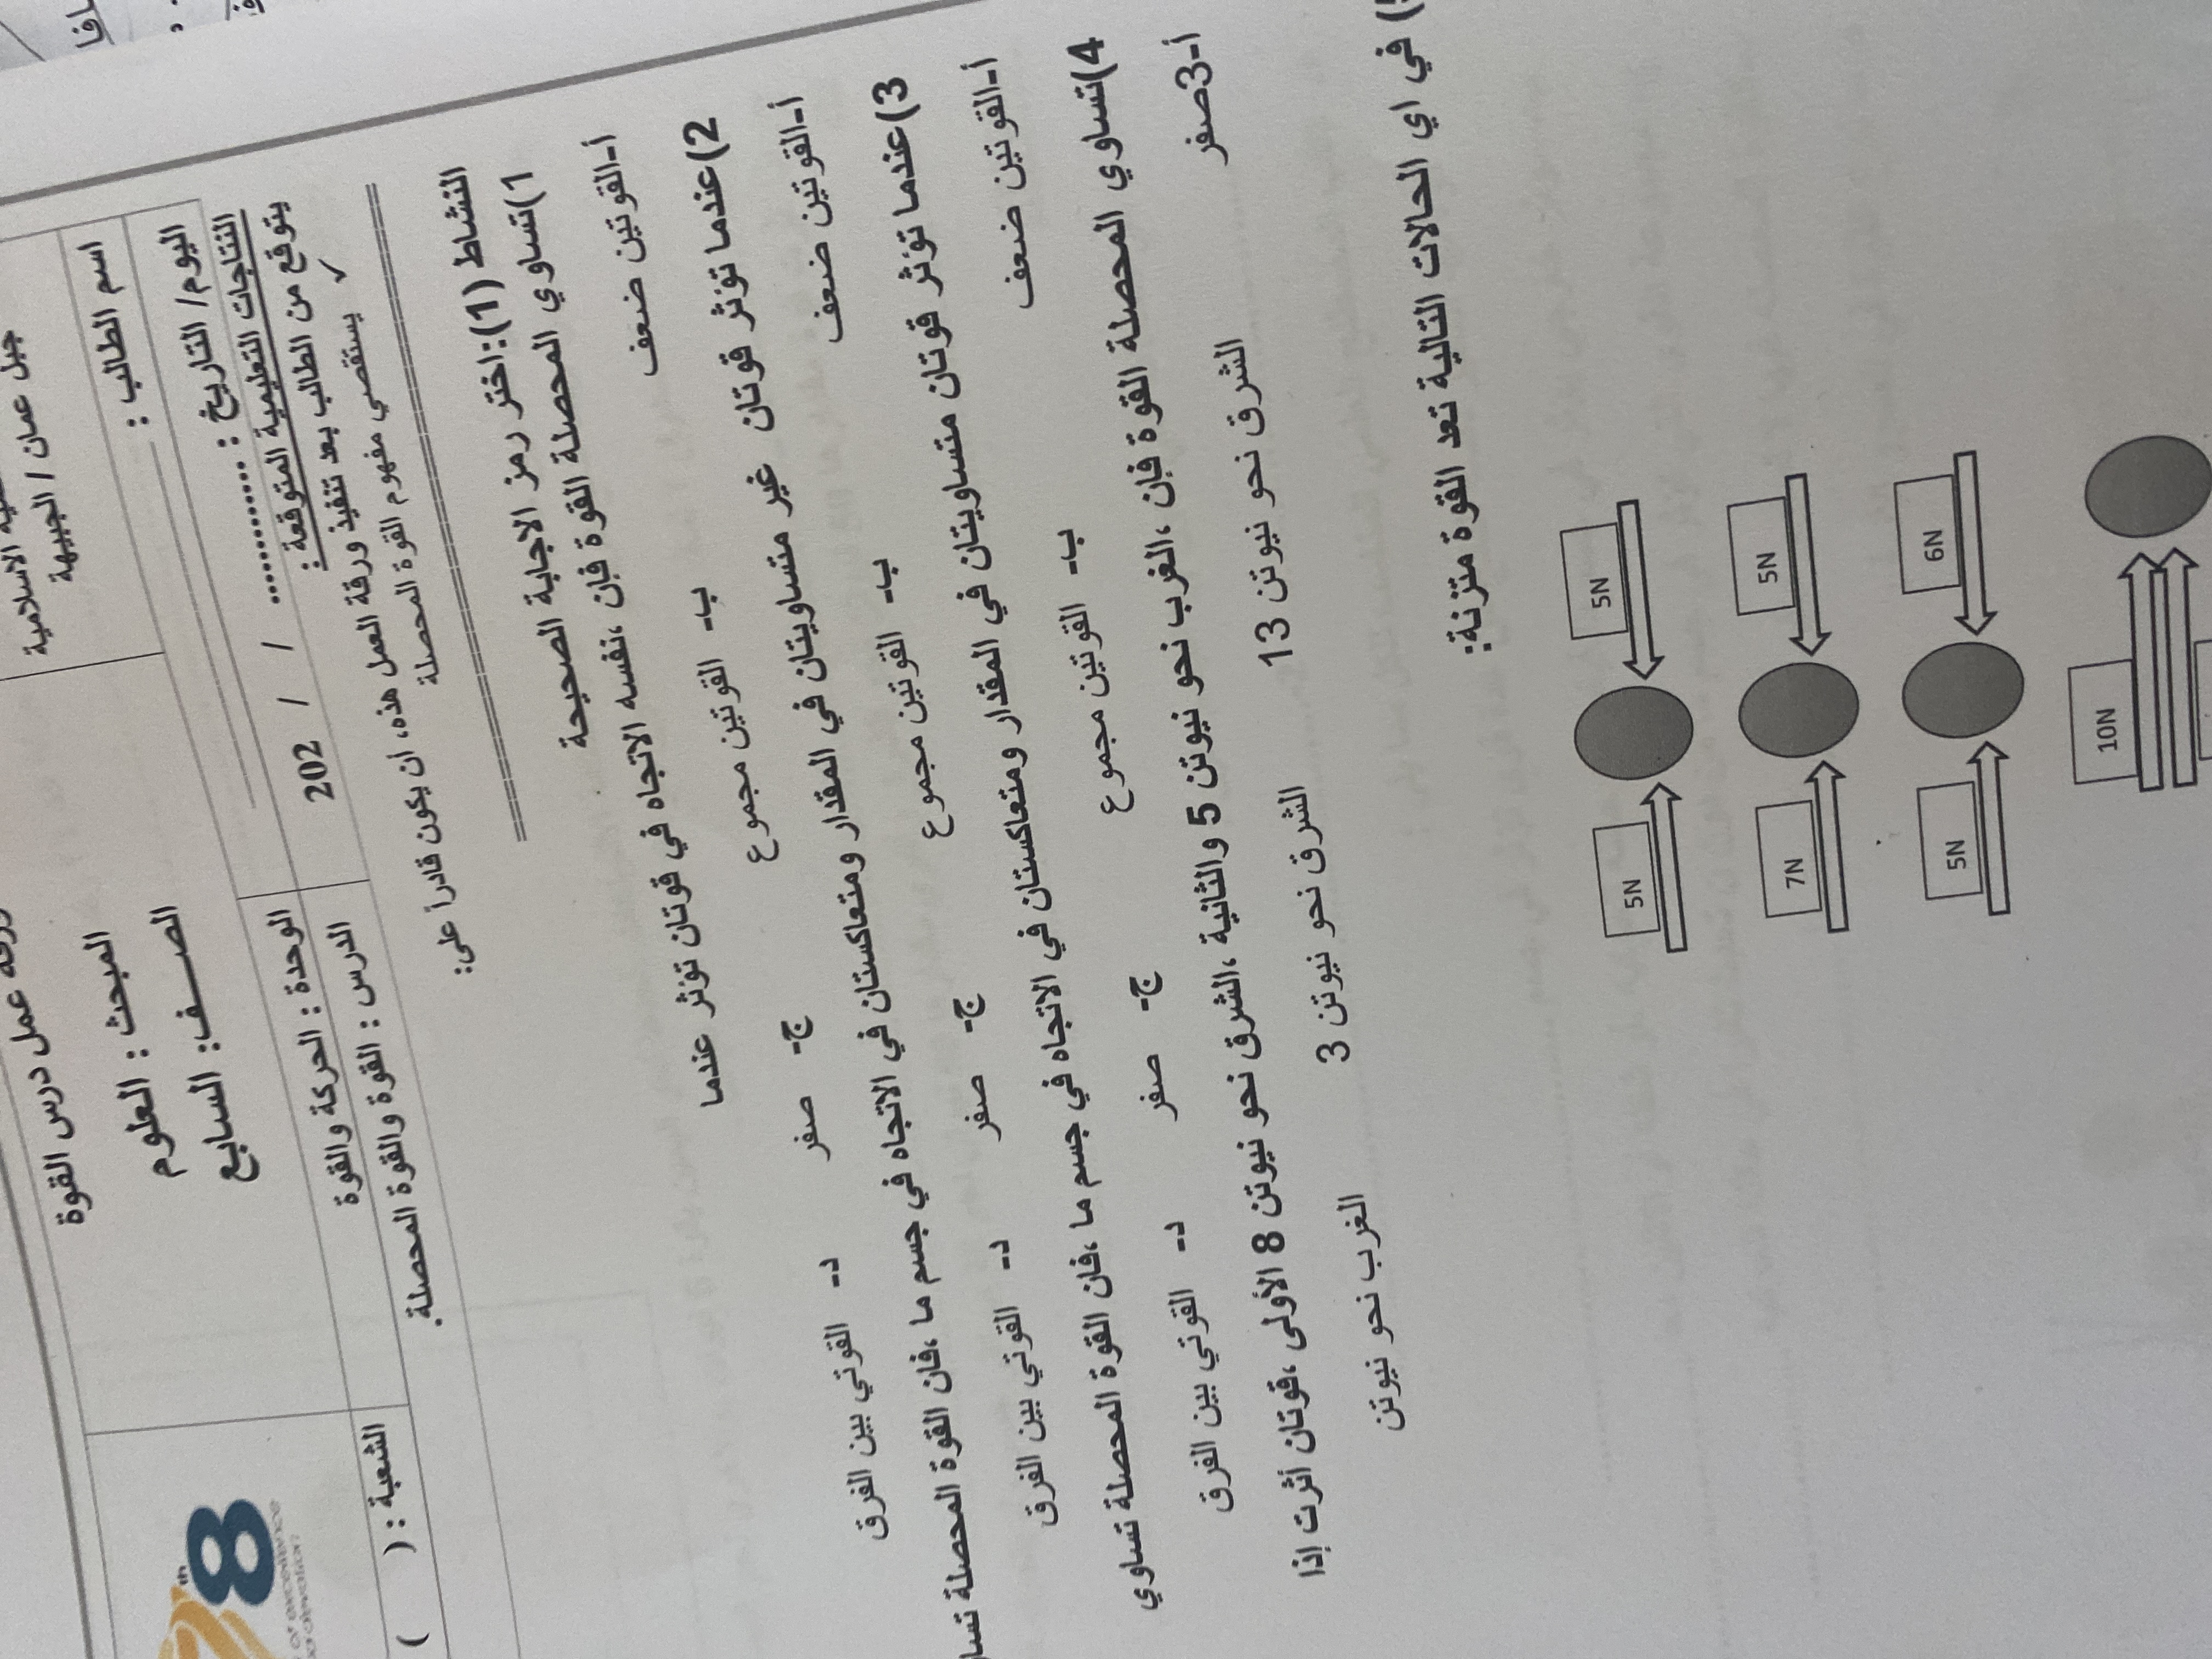 جبل عمان / الجبيهة
عمل درس القوة
اسم الطالب :
المبحث : العلوم
اليوم/ التاريخ : ............ / / 202
الصـــف: السابع
الشعبة : ( )
8 th
النتاجات التعليمية المتوقعة :
الوحدة : الحركة والقوة
الدرس : القوة والقوة المحصلة.
يتوقع من الطالب بعد تنفيذ ورقة العمل هذه، ان يكون قادرا على:
✓ يستقصي مفهوم القوة المحصلة
النشاط (1):اختر رمز الاجابة الصحيحة
1)تساوي المحصلة القوة فإن ،نفسه الاتجاه في قوتان تؤثر عندما
أ-القوتين ضعف ب- القوتين مجموع ج- صفر د- القوتي بين الفرق
2)عندما تؤثر قوتان غير متساويتان في المقدار ومتعاكستان في الاتجاه في جسم ما ،فان القوة المحصلة
أ-القوتين ضعف ب- القوتين مجموع ج- صفر د- القوتي بين الفرق
3)عندما تؤثر قوتان متساويتان في المقدار ومتعاكستان في الاتجاه في جسم ما ،فان القوة المحصلة تساوي
أ-القوتين ضعف ب- القوتين مجموع ج- صفر د- القوتي بين الفرق
4)تساوي المحصلة القوة فإن ،الغرب نحو نيوتن 5 والثانية ،الشرق نحو نيوتن 8 الأولى ،قوتان أثرت إذا
أ-3صفر الشرق نحو نيوتن 13 الشرق نحو نيوتن 3 الغرب نحو نيوتن
في اي الحالات التالية تعد القوة متزنة:
5N 5N
7N 5N
5N 6N
10N